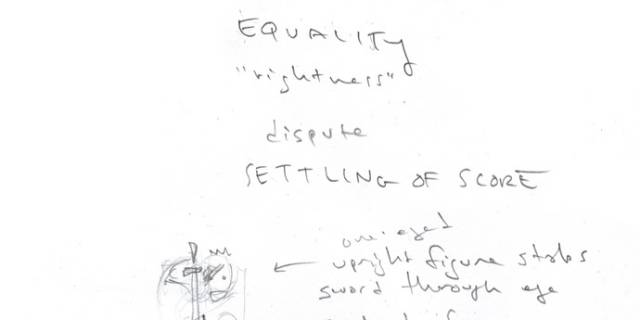 EQUALITY
"rightness"
dispute
SETTLING OF SCORE
one-eyed
upright figure stabs
sword through eye